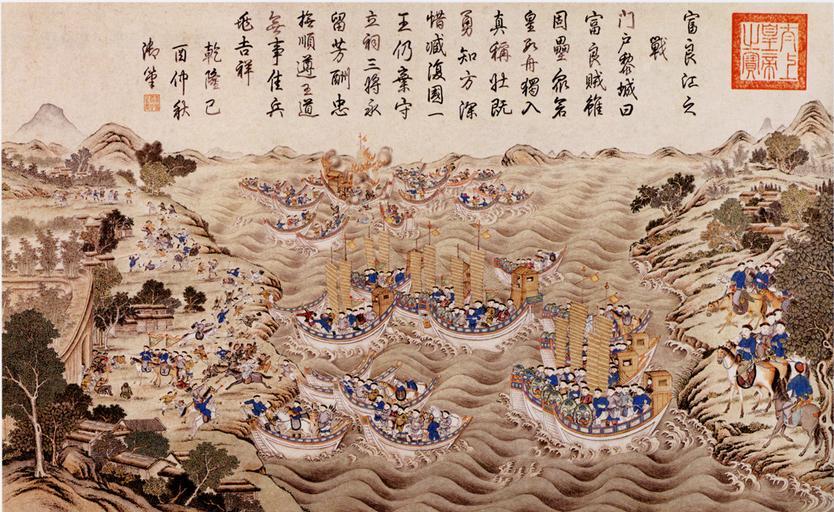 富良江之
戰
門户黎城曰
富良賊雖
固壘衆蒼
皇舟獨入
真稱壯既
勇知方深
惜臧復國一
王仍棄守
立祠三將永
留芳酬忠
撫順遵王道
無事佳兵
非吉祥
乾隆己
酉仲秋
御筆
太上皇帝之寶